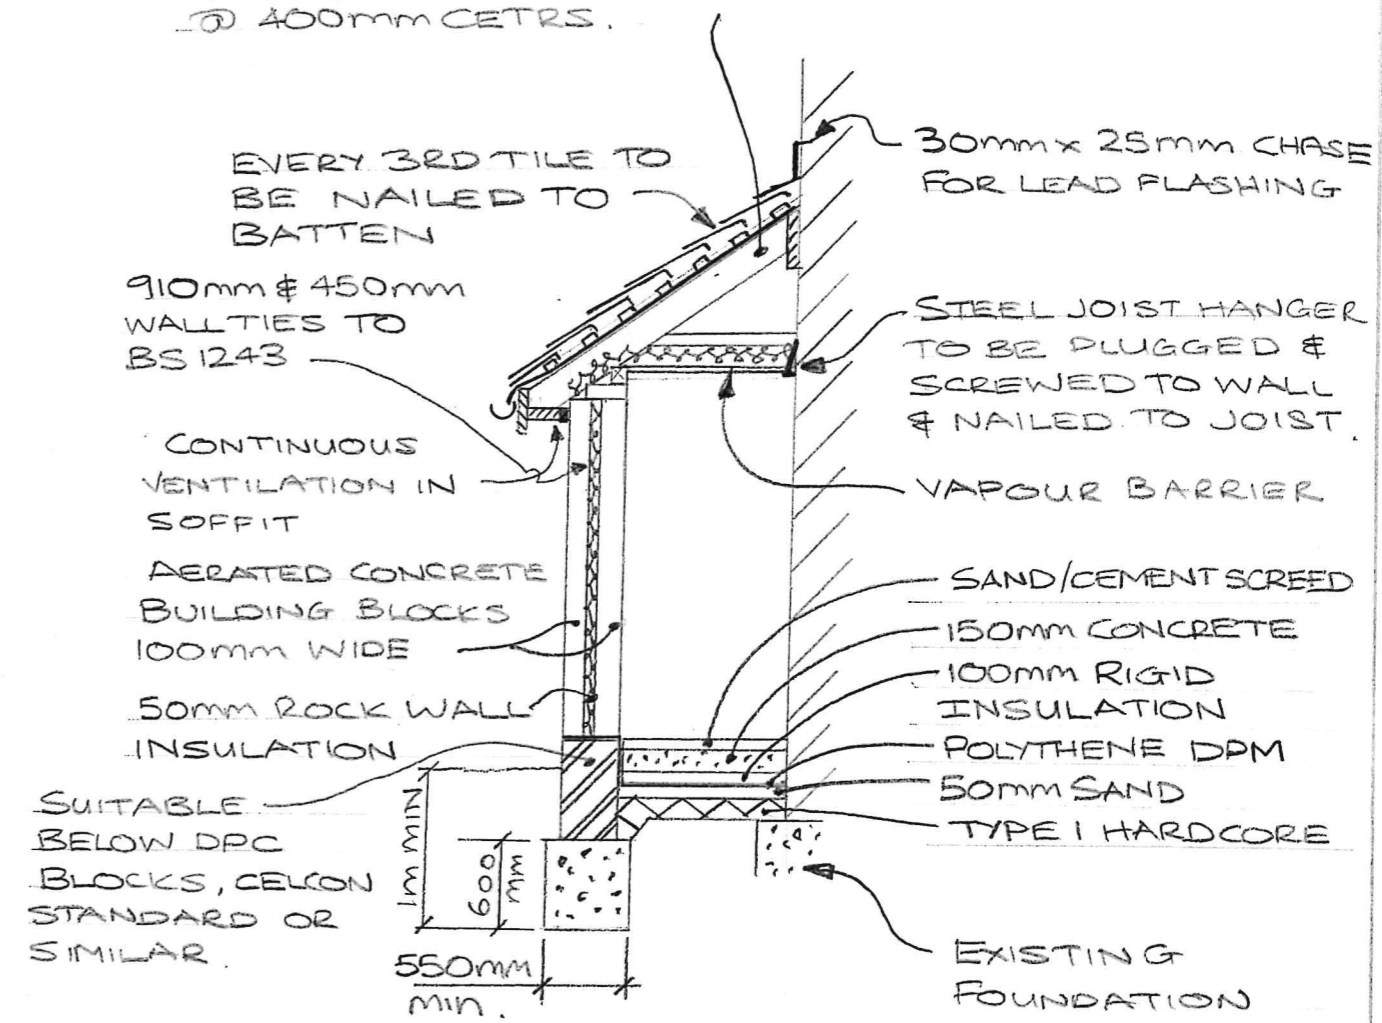 @ 400mm CETRS.
EVERY 3RD TILE TO
BE NAILED TO
BATTEN
910mm & 450mm
WALL TIES TO
BS 1243
CONTINUOUS
VENTILATION IN
SOFFIT
AERATED CONCRETE
BUILDING BLOCKS
100mm WIDE
50mm ROCK WALL
INSULATION
SUITABLE
BELOW DPC
BLOCKS, CELCON
STANDARD OR
SIMILAR.
1m MIN
600
mm
550mm
min.
30mm x 25mm CHASE
FOR LEAD FLASHING
STEEL JOIST HANGER
TO BE PLUGGED &
SCREWED TO WALL
& NAILED TO JOIST.
VAPOUR BARRIER
SAND/CEMENT SCREED
150mm CONCRETE
100mm RIGID
INSULATION
POLYTHENE DPM
50mm SAND
TYPE 1 HARDCORE
EXISTING
FOUNDATION